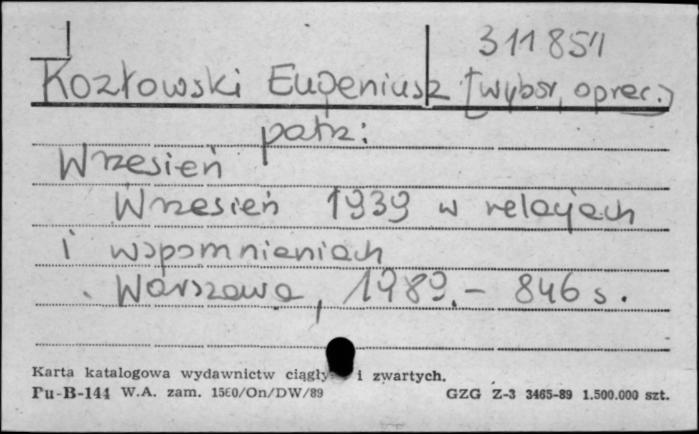 311854
Kozłowski Eugeniusz [wybór, oprac.]
patrz:
Wrzesień
Wrzesień 1939 w relacjach
i wspomnieniach
. Warszawa, 1989. – 846 s.
Karta katalogowa wydawnictw ciągły i zwartych.
Pu-B-144 W.A. zam. 1560/On/DW/89 GZG Z-3 3465-89 1.500.000 szt.